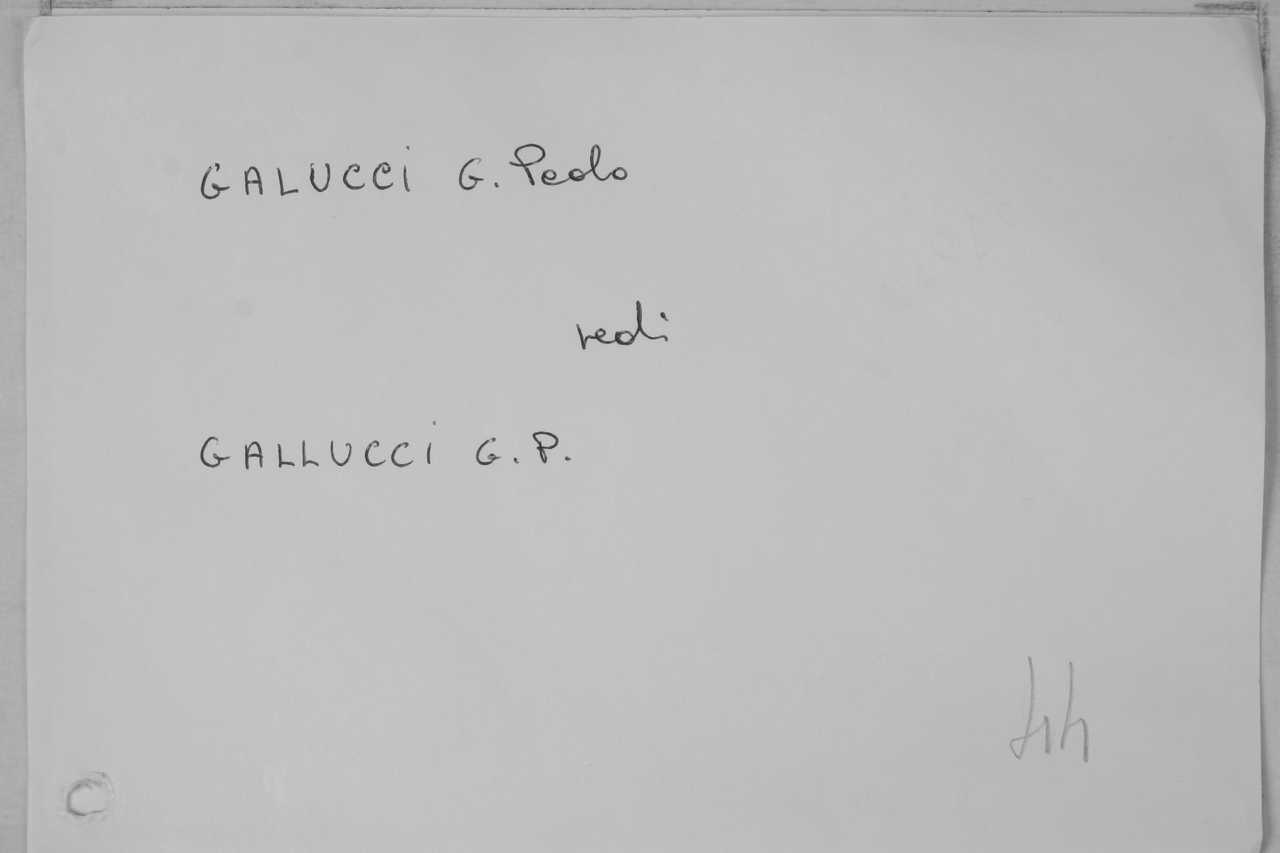 GALUCCI G. Paolo
vedi
GALLUCCI G. P.